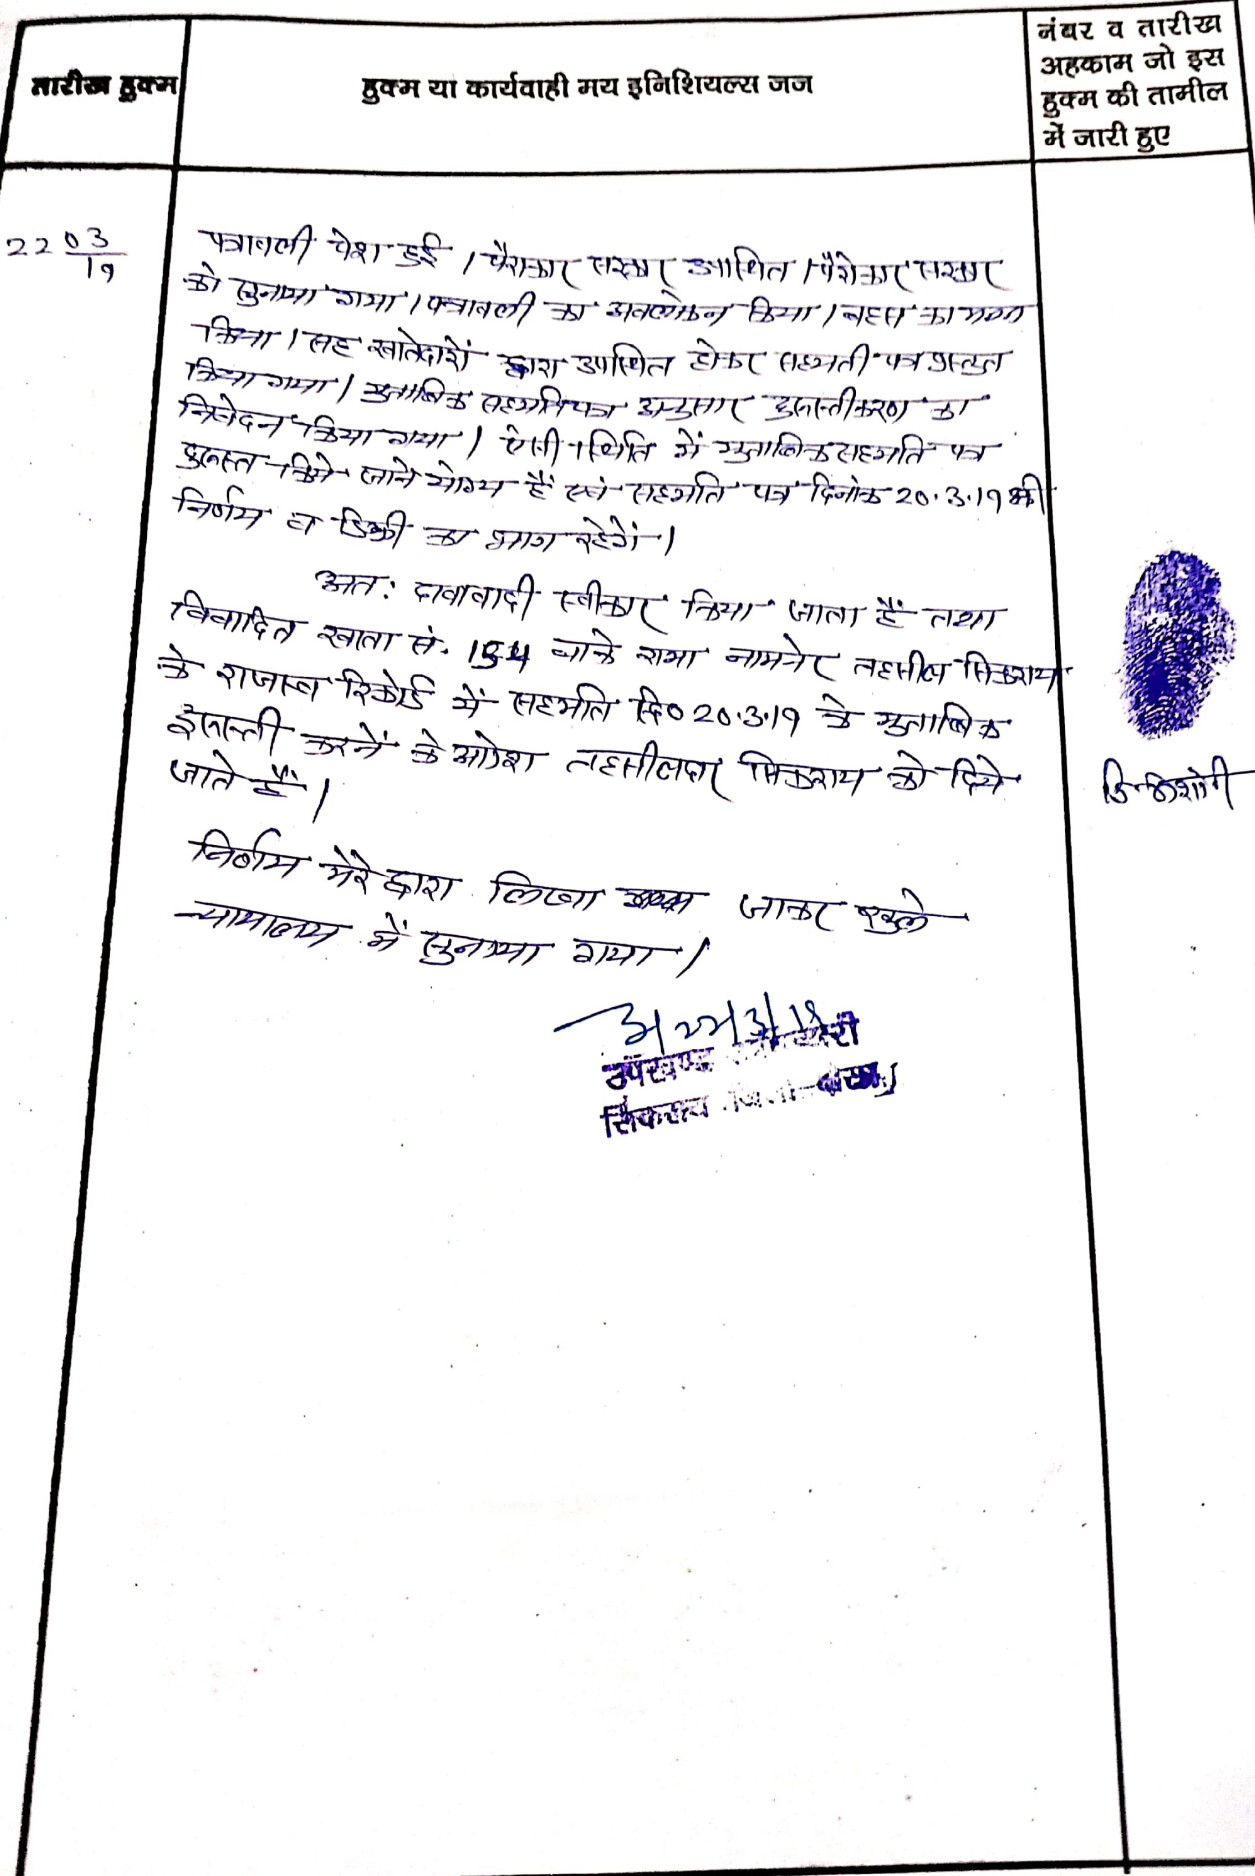 तारीख हुक्म
हुक्म या कार्यवाही मय इनिशियल्स जज
नंबर व तारीख
अहकाम जो इस
हुक्म की तामील
में जारी हुए
22 03
19
पत्रावली पेश हुई । पैरोकार सरकार उपस्थित । पैरोकार सरकार
को सुनाया गया । पत्रावली का अवलोकन किया । बहस का मनन
किया । सह खातेदारों द्वारा उपस्थित होकर सहमती पत्र प्रस्तुत
किया गया । मुताबिक सहमति पत्र अनुसार दुरूस्तीकरण का
निवेदन किया गया । ऐसी स्थिति में मुताबिक सहमति पत्र
दुरूस्त किये जाने योग्य हैं एवं सहमति पत्र दिनांक 20.3.19 भी
निर्णय व डिक्री का भाग रहेगें ।
अतः दावावादी स्वीकार किया जाता हैं तथा
विवादित खाता सं. 154 वाके नामनेर तहसील सिकराय
के राजस्व रिकोर्ड में सहमति दि० 20.3.19 के मुताबिक
दुरूस्ती करनें के आदेश तहसीलदार सिकराय को दिये
जाते हैं ।
निर्णय मेरे द्वारा लिखा जाकर खुले
न्यायालय में सुनाया गया ।
उपखण्ड अधिकारी
सिकराय जिला-दौसा